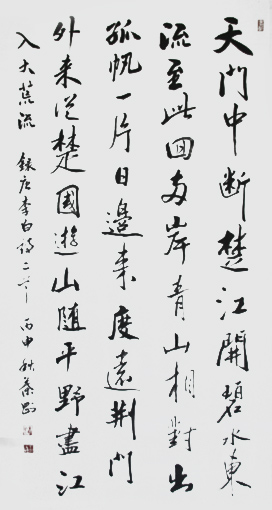 天門中断楚江開碧水東
流至此回兩岸青山相對出
孤帆一片日邊來度遠荆門
外来從楚國遊山随平野盡江
入大荒流 録唐李白詩二首 丙申秋